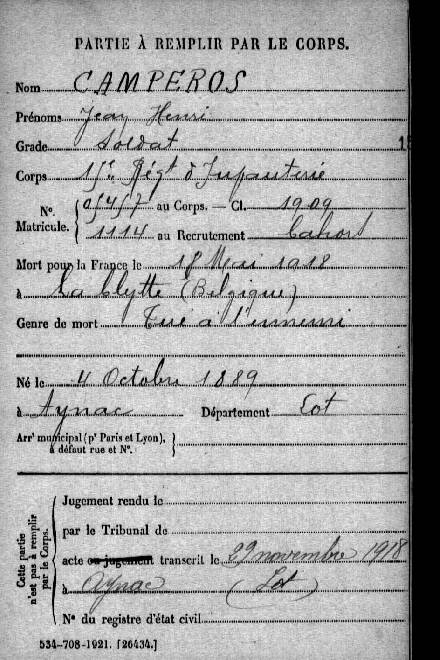 PARTIE À REMPLIR PAR LE CORPS.
Nom CAMPEROS
Prénoms Jean Henri
Grade Soldat
Corps 15e Régt d'Infanterie
No. Matricule. { au Corps. — Cl. 1909
1114 au Recrutement Cahors
Mort pour la France le 18 Mai 1918
à La Clytte (Belgique)
Genre de mort Tué à l'ennemi
Né le 4 Octobre 1889
à Aynac Département Lot
Arrt municipal (pr Paris et Lyon), à défaut rue et No. }
Cette partie n'est pas à remplir par le Corps. {
Jugement rendu le
par le Tribunal de
acte ou jugement transcrit le 29 novembre 1918
à Aynac (Lot)
No du registre d'état civil
534-708-1921. [26434.]